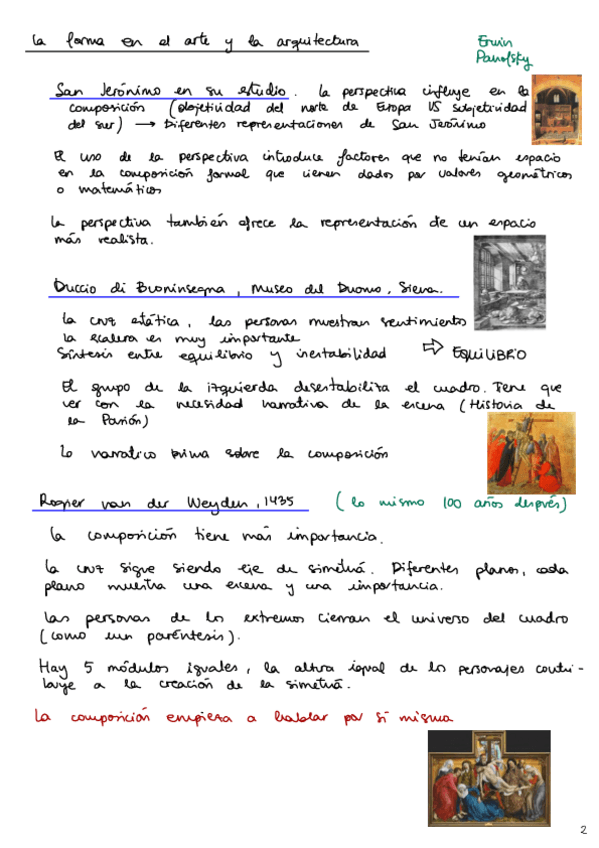 La forma en el arte y la arquitectura
Erwin
Panofsky
San Jerónimo en su estudio. La perspectiva influye en la
composición (objetividad del norte de Europa VS subjetividad
del sur) → Diferentes representaciones de San Jerónimo
El uso de la perspectiva introduce factores que no tenían espacio
en la composición formal que vienen dados por valores geométricos
o matemáticos
La perspectiva también ofrece la representación de un espacio
más realista.
Duccio di Buoninsegna, Museo del Duomo, Siena.
La cruz estática, las personas muestran sentimientos
La escalera es muy importante
Síntesis entre equilibrio y inestabilidad ⇨ EQUILIBRIO
El grupo de la izquierda desestabiliza el cuadro. Tiene que
ver con la necesidad narrativa de la escena (Historia de
la Pasión)
Lo narrativo prima sobre la composición
Rogier van der Weyden, 1435 (lo mismo 100 años después)
La composición tiene más importancia.
La cruz sigue siendo eje de simetría. Diferentes planos, cada
plano muestra una escena y una importancia.
Las personas de los extremos cierran el universo del cuadro
(como un paréntesis).
Hay 5 módulos iguales, la altura igual de los personajes contri-
buye a la creación de la simetría.
La composición empieza a hablar por sí misma
2